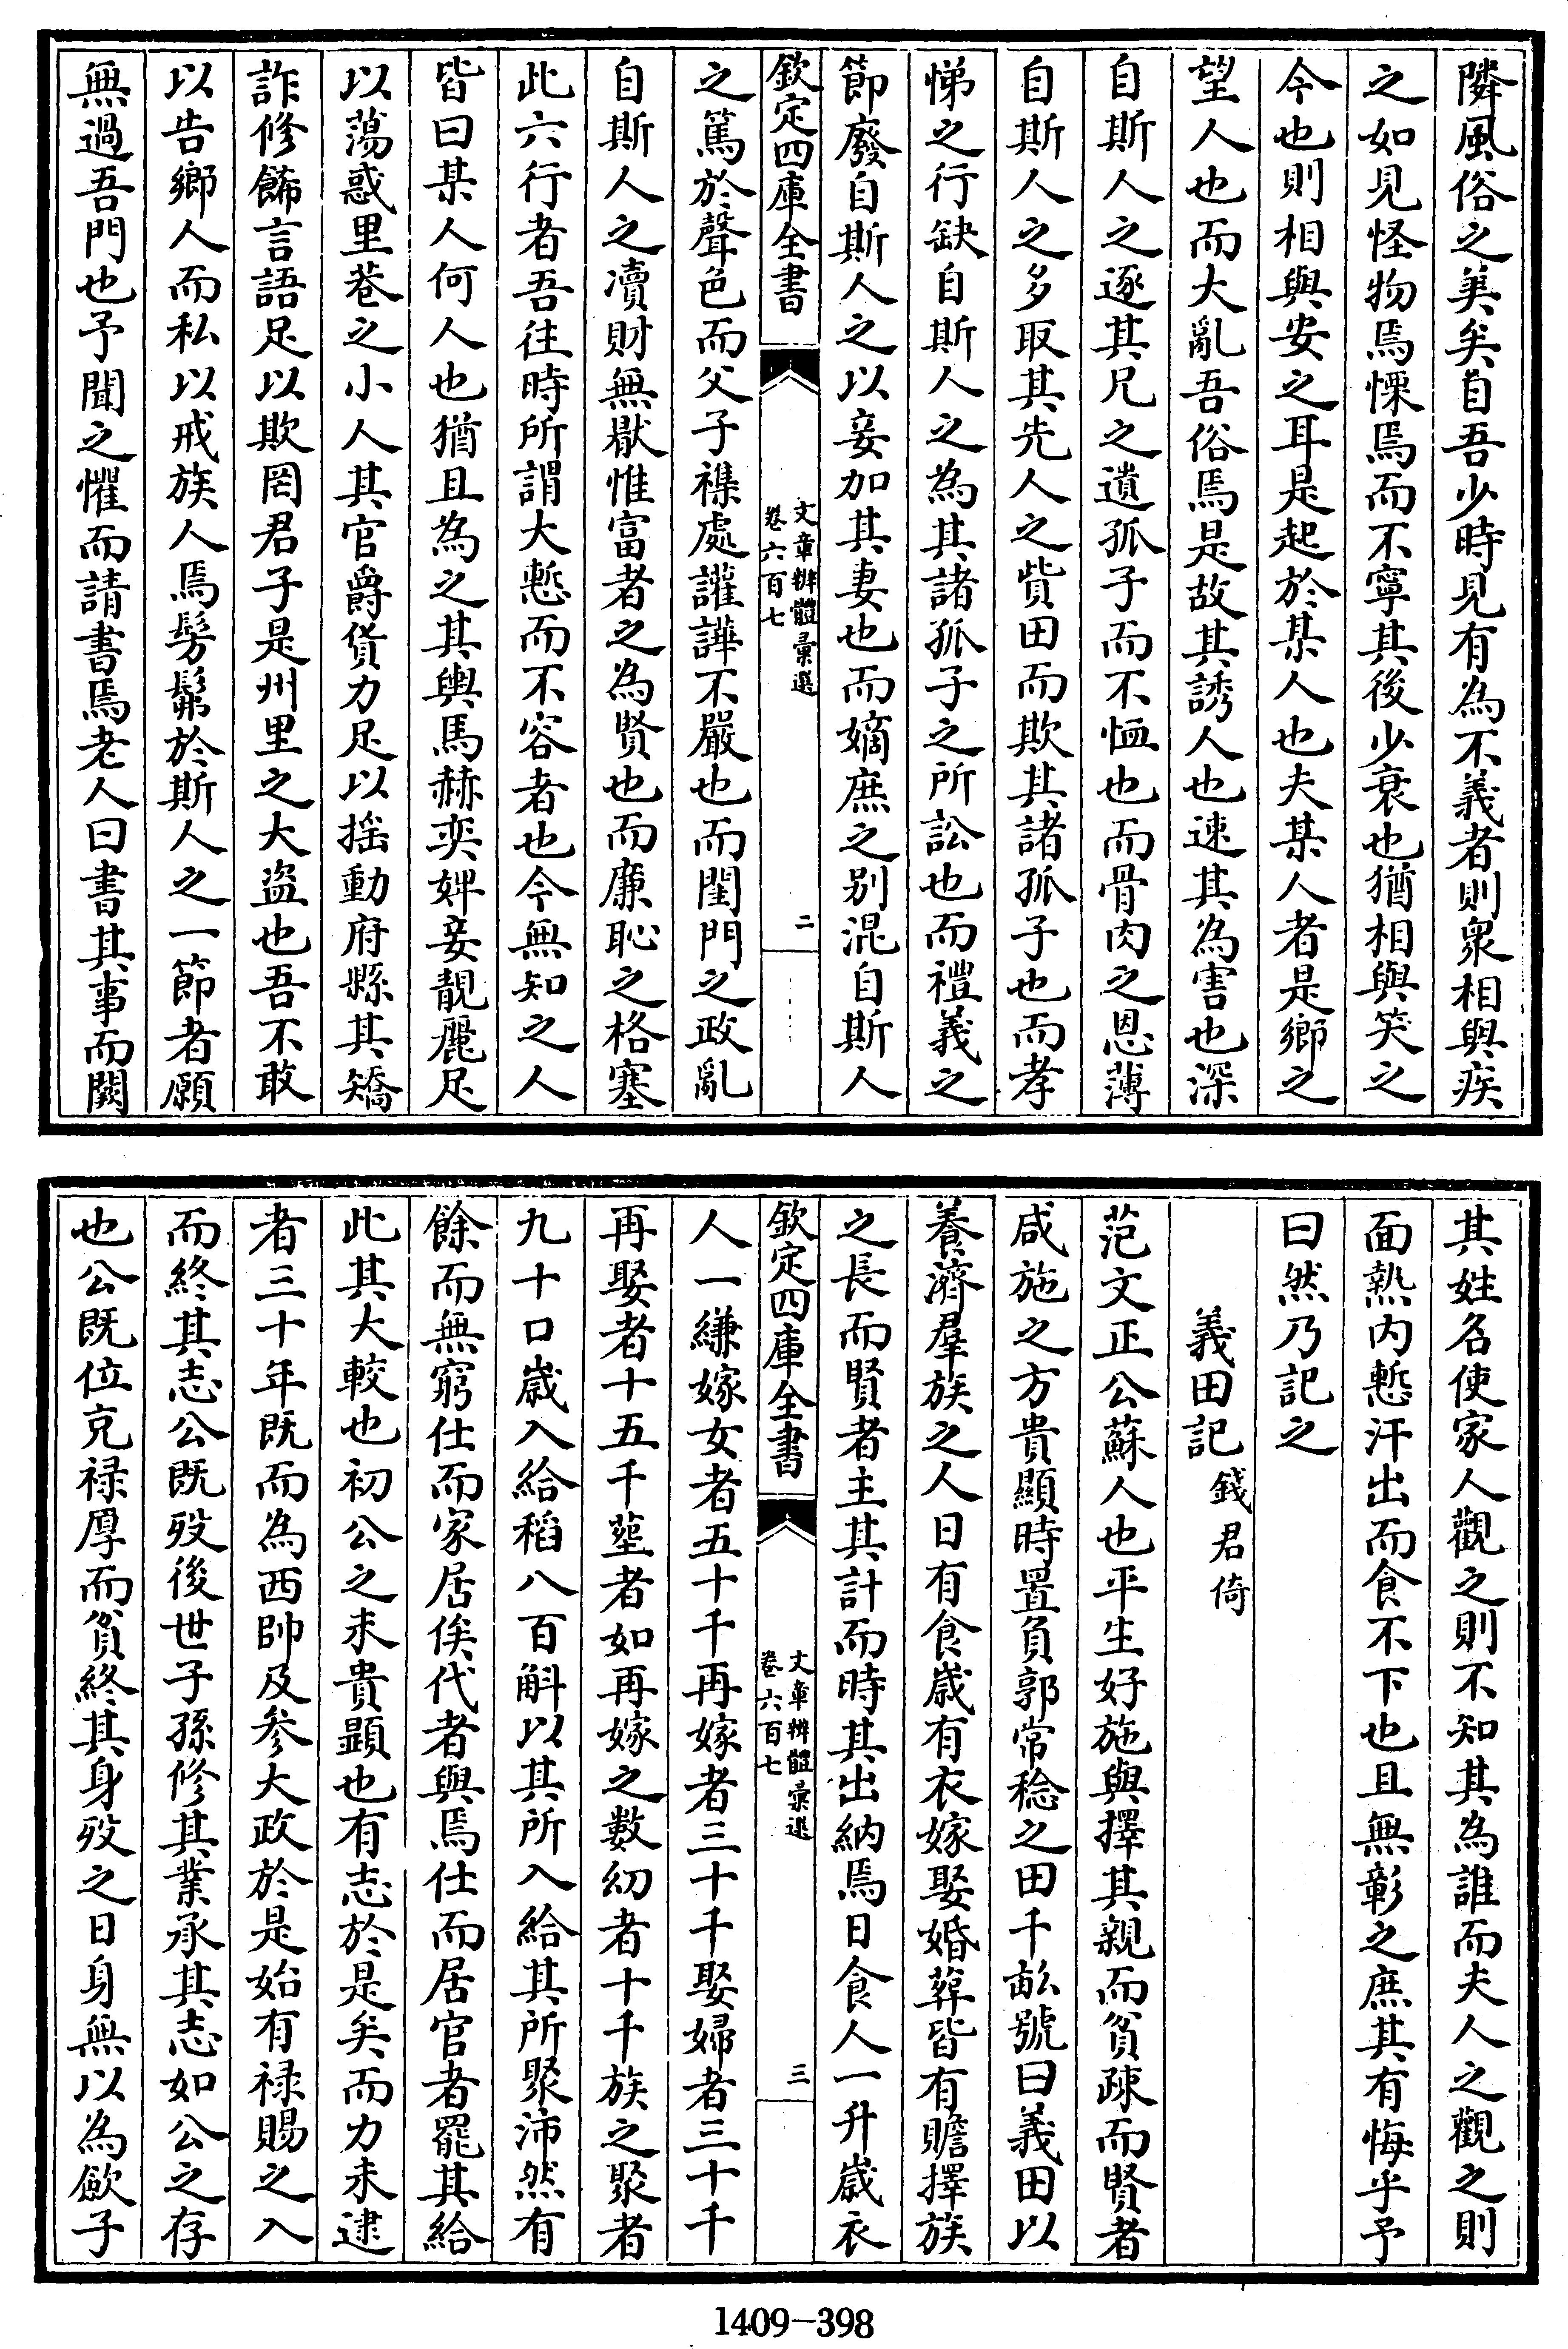 隣風俗之美矣自吾少時見有為不義者則衆相與疾
之如見怪物焉慄焉而不寧其後少衰也猶相與笑之
今也則相與安之耳是起於某人也夫某人者是鄉之
望人也而大亂吾俗焉是故其誘人也速其為害也深
自斯人之逐其兄之遺孤子而不恤也而骨肉之恩薄
自斯人之多取其先人之貲田而欺其諸孤子也而孝
悌之行缺自斯人之為其諸孤子之所訟也而禮義之
節廢自斯人之以妾加其妻也而嫡庶之别混自斯人
欽定四庫全書
文章辨體彙選
卷六百七
二
之篤於聲色而父子襍處讙譁不嚴也而閨門之政亂
自斯人之凟財無厭惟富者之為賢也而廉恥之格塞
此六行者吾往時所謂大慙而不容者也今無知之人
皆曰某人何人也猶且為之其輿馬赫奕婢妾靚麗足
以蕩惑里巷之小人其官爵貨力足以揺動府縣其矯
詐修飾言語足以欺罔君子是州里之大盗也吾不敢
以告鄉人而私以戒族人焉髣髴於斯人之一節者願
無過吾門也予聞之懼而請書焉老人曰書其事而闕
其姓名使家人觀之則不知其為誰而夫人之觀之則
面熱内慙汗出而食不下也且無彰之庶其有悔乎予
曰然乃記之
義田記 錢君倚
范文正公蘇人也平生好施與擇其親而貧疎而賢者
咸施之方貴顯時置負郭常稔之田千畝號曰義田以
養濟羣族之人日有食嵗有衣嫁娶婚葬皆有贍擇族
之長而賢者主其計而時其出納焉日食人一升嵗衣
欽定四庫全書
文章辨體彙選
卷六百七
三
人一縑嫁女者五十千再嫁者三十千娶婦者三十千
再娶者十五千塟者如再嫁之數幼者十千族之聚者
九十口嵗入給稻八百斛以其所入給其所聚沛然有
餘而無窮仕而家居俟代者與焉仕而居官者罷其給
此其大較也初公之未貴顯也有志於是矣而力未逮
者三十年既而為西帥及參大政於是始有禄賜之入
而終其志公既殁後世子孫修其業承其志如公之存
也公既位充禄厚而貧終其身殁之日身無以為歛子
1409-398